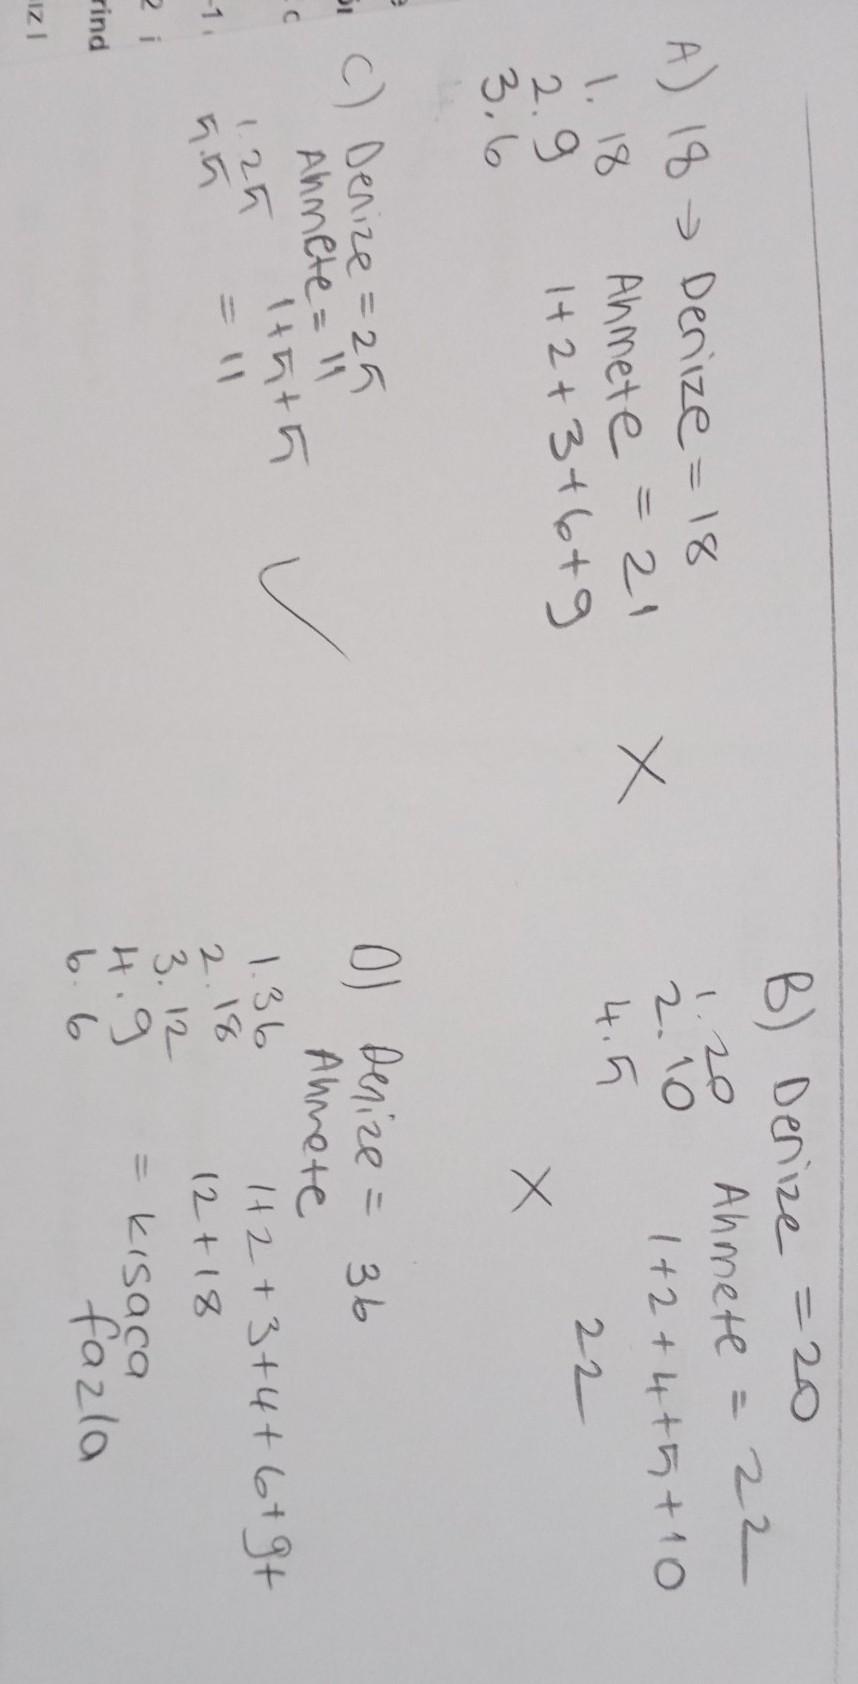 A) 18 → Denize = 18
1. 18 Ahmete = 21
2. 9 1+2+3+6+9
3. 6
X
B) Denize = 20
1. 20 Ahmete = 22
2. 10 1+2+4+5+10
4. 5 22
X
C) Denize = 25
Ahmete = 11
1. 25 1+5+5
5.5 = 11
✓
D) Denize = 36
Ahmete
1.36 1+2+3+4+6+9+
2.18 12+18
3.12
4.9 = kısaca
6.6 fazla
rind